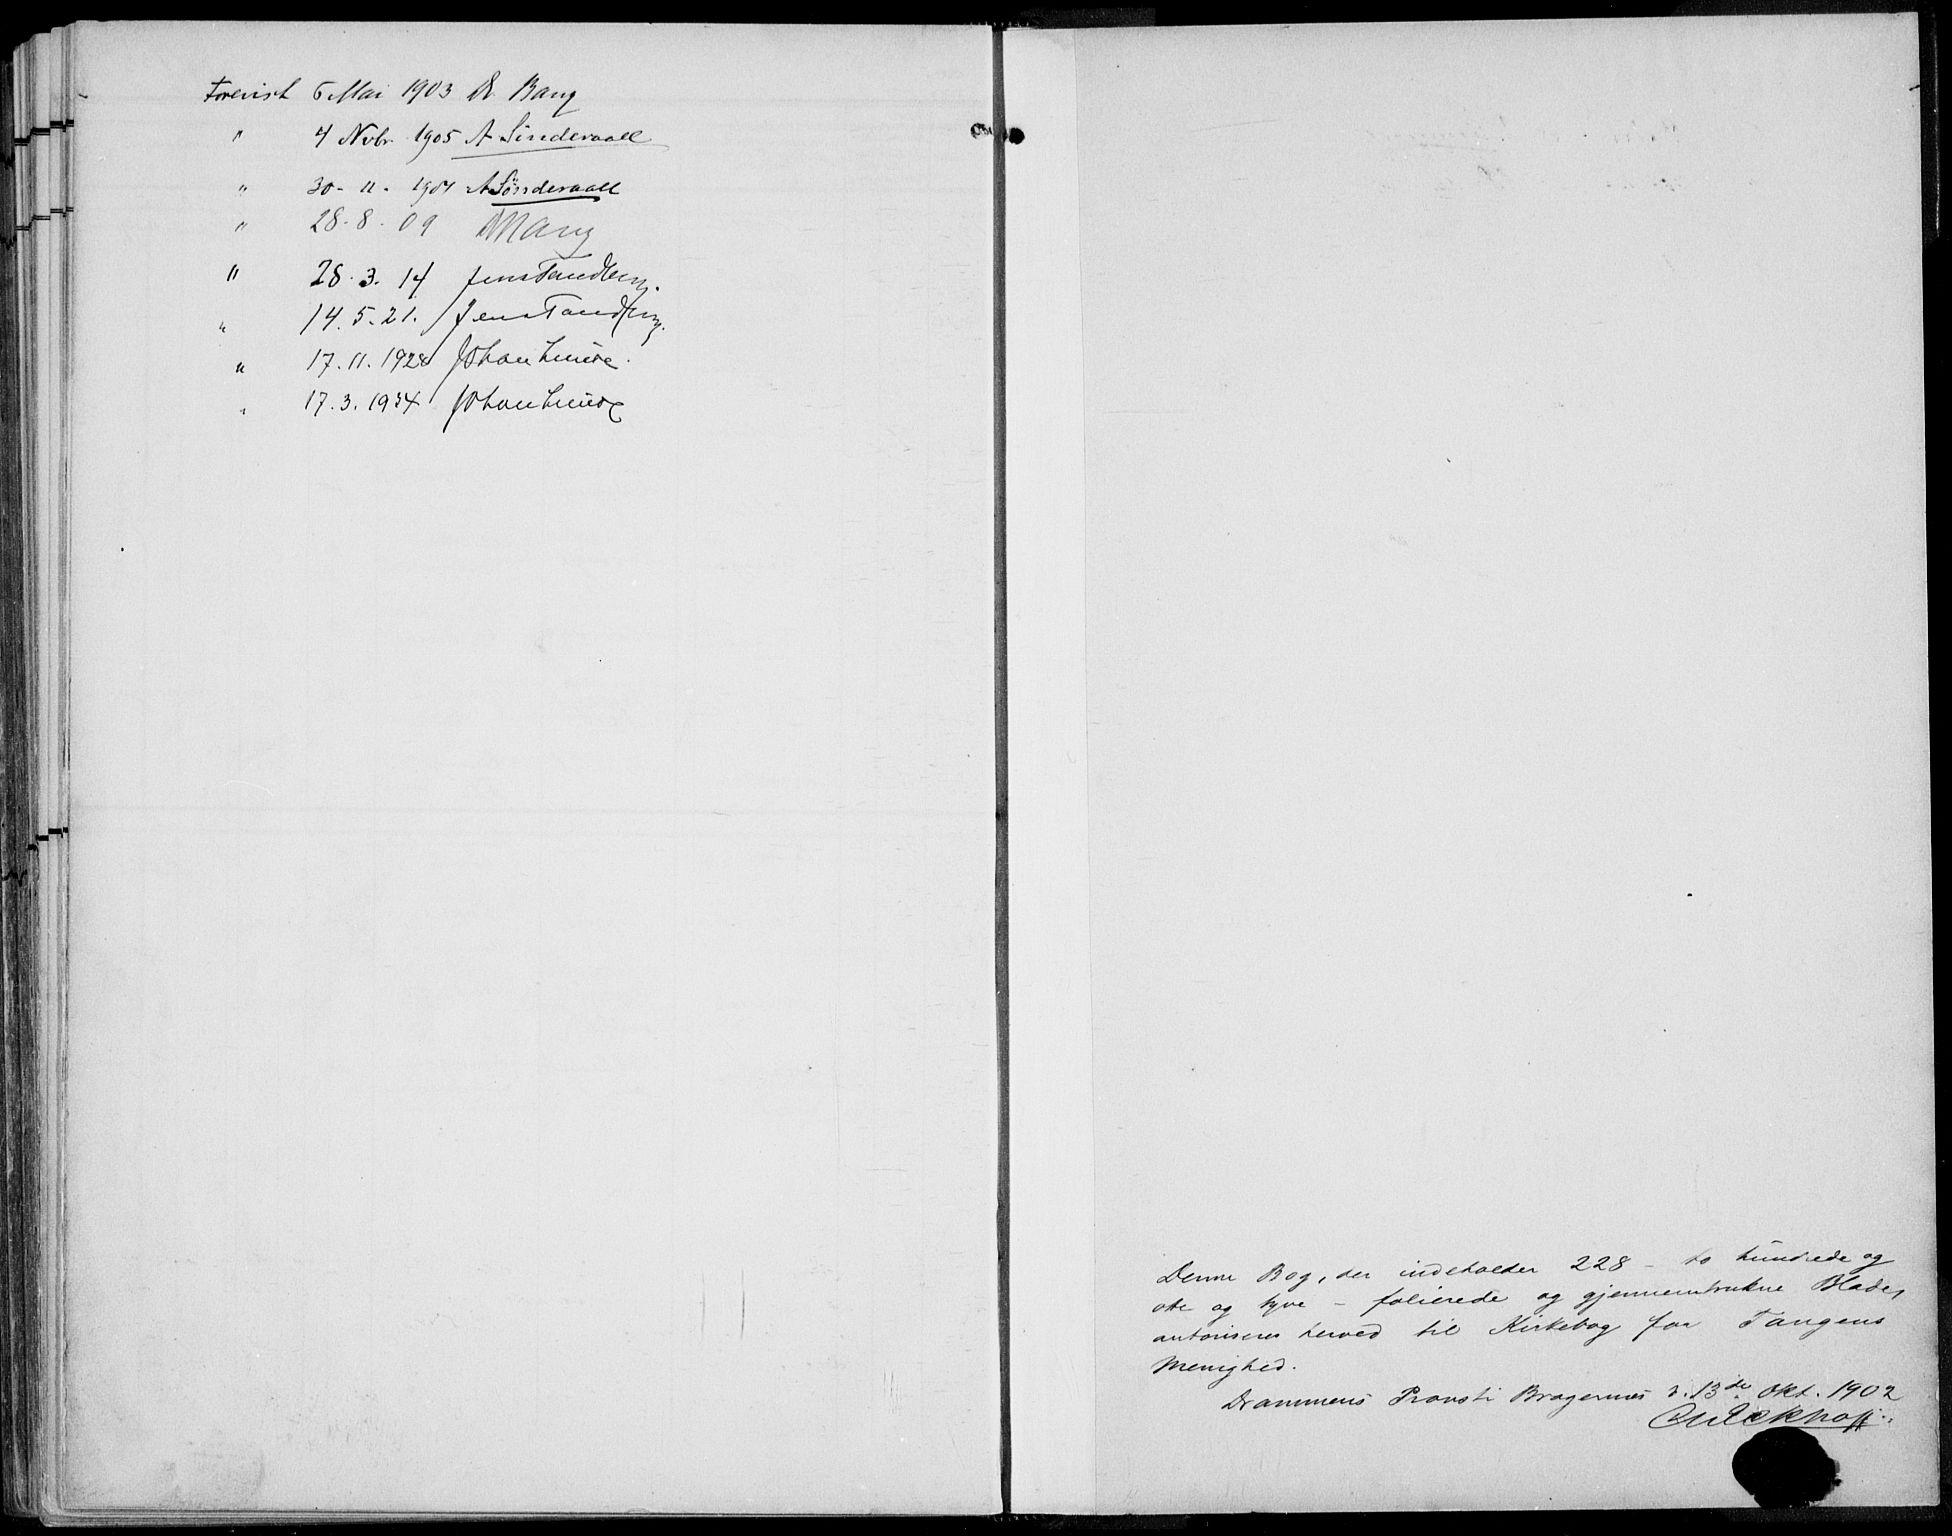 Forevist 6 Mai 1903 Dr. Bang
" 4 Nvbr. 1905 A Sinderaall
" 30-11-1907 A Sönderaall
" 28-8-09 Bang
" 28.3.14 Jens Tandberg.
" 14.5.21. Jens Tandberg.
" 17.11.1928 Johan Lunde.
" 17.3.1934 Johan Lunde
Denne Bog, der indeholder 228 - to hundrede og
otte og tyve - folierede og gjennemtrukne Blade,
autoriseres herved til Kirkebog for Tangens
Menighed.
Drammens Provsti Bragernes d. 13de Okt. 1902
Eckhoff